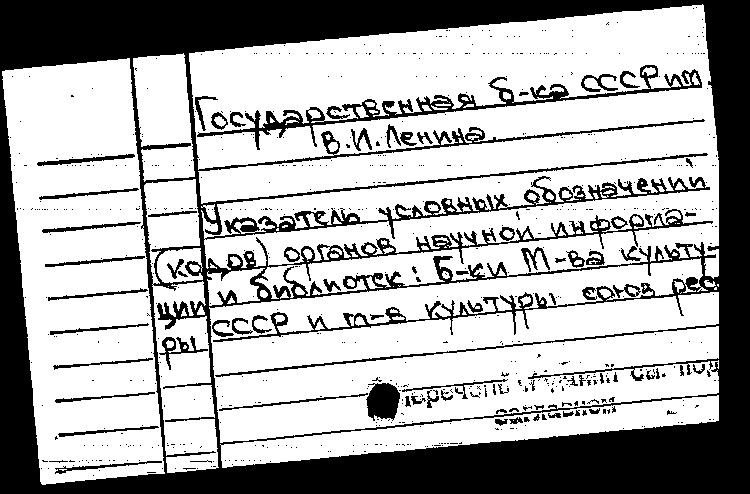 Государственная б-ка СССР им.
В.И.Ленина.
Указатель условных обозначений
(кодов) органов научной информа-
ции и библиотек: Б-ки М-ва культу-
ры СССР и м-в культуры союз респ
Перечень изданий см. под
заглавием